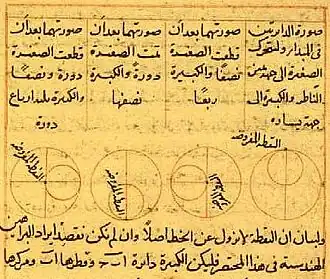 صورة الدايرتين
الصغيرة الى جهة يمين
الناظر والكبيرة الى
جهة يساره
صورتهما بعد ان
قطعت الصغيرة
نصفا والكبيرة
ربعا
صورتهما بعد ان
تمت الصغيرة
دورة والكبيرة
نصفها
صورتهما بعد ان
قطعت الصغيرة
دورة ونصفا
والكبيرة ارباع
دورة
النقطة المفروضة
النقطة المفروضة
النقطة المفروضة
النقطة المفروضة
ولبيان ان النقطة لا تزول عن الخط اصلا وان لم يكن نقصد ايراد البراهين
الهندسية في هذا المختصر فليكن الكبيرة دائرة اب وقطرها اب ومركزها